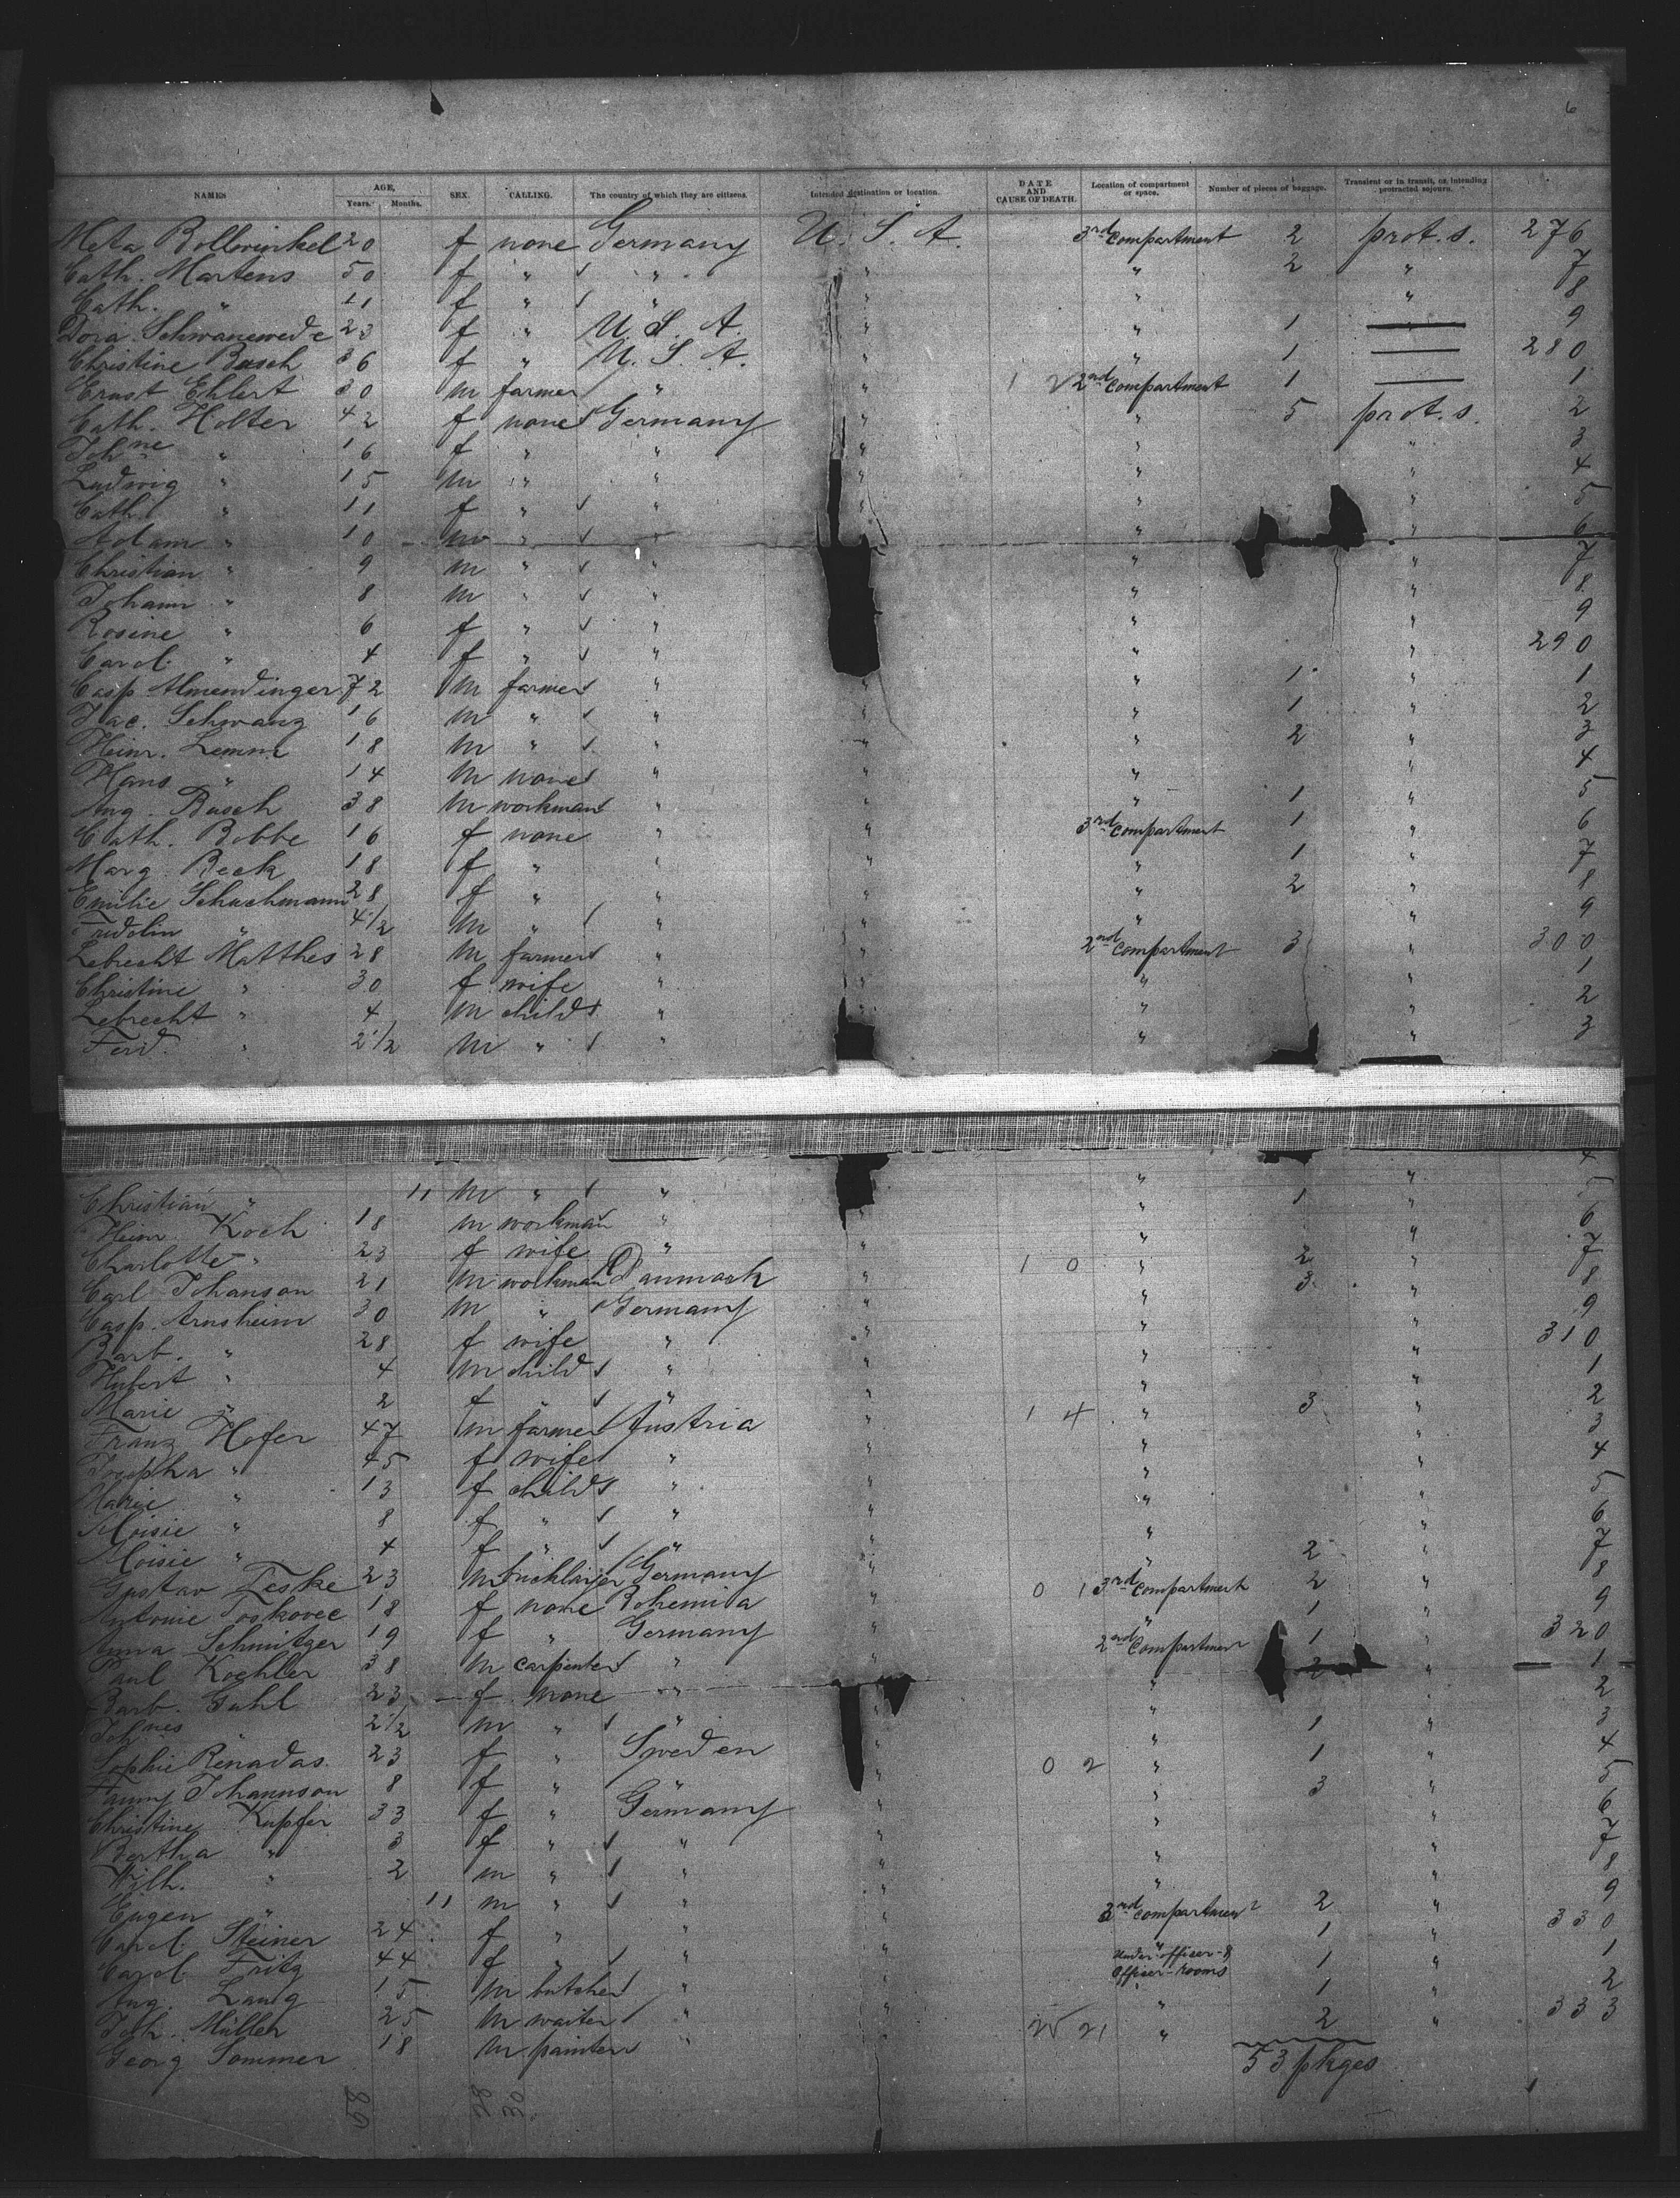 6
NAMES AGE, Years. Months. SEX. CALLING. The country of which they are citizens. Intended destination or location. DATE AND CAUSE OF DEATH. Location of compartment or space. Number of pieces of baggage. Transient or in transit, or, intending protracted sojourn.
Meta Bollwinkel 20 f none Germany U. S. A. 3rd Compartment 2 prot. s. 276
Cath. Martens 50 f " " " " 2 " 7
Cath. " 11 f " " " " " 8
Dora Schwanewede 23 f " U. S. A. " " 1 — 9
Christine Busch 36 f " U. S. A. " " 1 — 280
Ernst Ehlert 30 m farmer " " 1 2 2nd Compartment 1 — 1
Cath. Holter 42 f none Germany " " 5 prot. s. 2
Johne " 16 f " " " " " 3
Ludwig " 15 m " " " " " 4
Cath. " 11 f " " " " " 5
Adam " 10 m " " " " 6
Christian " 9 m " " " " 7
Johann " 8 m " " " " 8
Rosine " 6 f " " " " 9
Carol. " 4 f " " " " 290
Casp. Almendinger 72 m farmer " " " 1 " 1
Jac. Schwanz 16 m " " " " 1 " 2
Heinr. Lemme 18 m " " " " 2 " 3
Hans " 14 m none " " " " 4
Aug. Busch 38 m workman " " " 1 " 5
Cath. Bobbe 16 f none " " 3rd Compartment 1 " 6
Marg. Beck 18 f " " " " 1 " 7
Emilie Schuchmann 28 f " " " " 2 " 8
Fridolin " 4 1/2 m " " " " " 9
Lebrecht Matthes 28 m farmer " " 2nd Compartment 3 " 300
Christine " 30 f wife " " " " 1
Lebrecht " 4 m child " " " " 2
Ferd. " 2 1/2 m " " " " 3
Christian " 11 m " " " " 4
Heinr. Koch 18 m workman " " " 1 " 5
Charlotte " 23 f wife " " " " 6
Carl Johanson 21 m workman Danmark " 1 0 " 2 " 7
Casp. Arnsheim 30 m " Germany " " 3 " 8
Barb. " 28 f wife " " " " 9
Hubert " 4 m child " " " " 310
Marie " 2 f " " " " " 1
Franz Hofer 47 m farmer Austria " 1 4 " 3 " 2
Josepha " 45 f wife " " " " 3
Marie " 13 f child " " " " 4
" 8 f " " " " " 5
" 4 f " " " " " 6
Gustav Teske 23 m Germany " " 2 " 7
Antonie 18 f none Bohemia " 0 1 3rd Compartment 2 " 8
Anna Schmitzer 19 f " Germany " " 1 " 9
Paul Koehler 38 m carpenter " " 2nd Compartment 1 " 320
Barb. Gahl 23 f none " " " 2 " 1
Johnes " 2 1/2 m " " " " 2
Sophie Renadas 23 f " Sweden " " 1 " 3
Fanny Johannson 8 f " " " 0 2 " 1 " 4
Christine Kupfer 33 f " Germany " " 3 " 5
Bertha " 3 f " " " " " 6
Wilh. " 2 m " " " " " 7
Eugen " 11 m " " " " " 8
Carol. Steiner 24 f " " " 3rd Compartment 2 " 9
Carol. Fritz 44 f " " " " 1 " 330
Aug. Lang 15 m butcher " " Under-officer- & Officer-rooms 1 " 1
Joh. Müller 25 m waiter " " " 1 " 2
Georg Sommer 18 m painter " " " 2 " 333
53 pkges